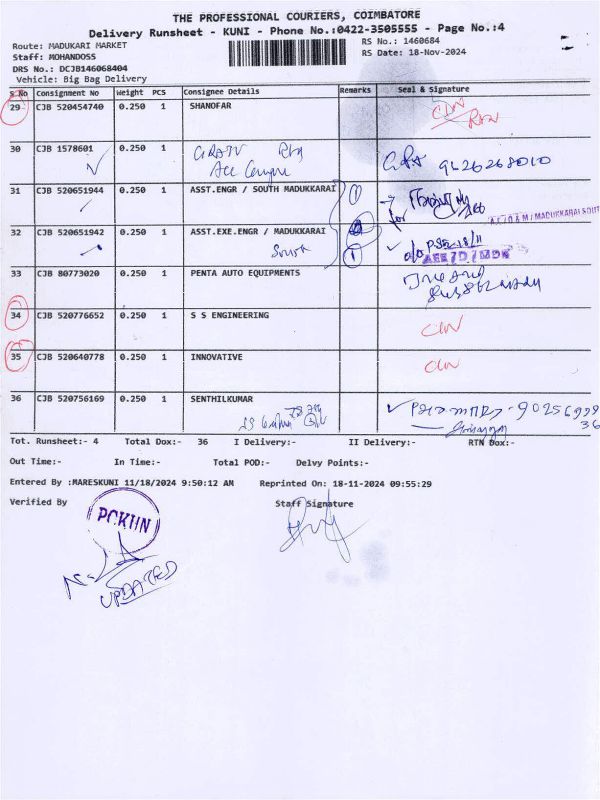 THE PROFESSIONAL COURIERS, COIMBATORE
Delivery Runsheet - KUNI - Phone No.:0422-3505555 - Page No.:4
Route: MADUKARI MARKET
RS No.: 1460684
Staff: MOHANDOSS
RS Date: 18-Nov-2024
DRS No.: DCJB146068404
Vehicle: Big Bag Delivery
S No Consignment No Weight PCS Consignee Details Remarks Seal & Signature
29 CJB 520454740 0.250 1 SHANOFAR
30 CJB 1578601 0.250 1
9626268010
31 CJB 520651944 0.250 1 ASST.ENGR / SOUTH MADUKKARAI 1
for
32 CJB 520651942 0.250 1 ASST.EXE.ENGR / MADUKKARAI
South 1
33 CJB 80773020 0.250 1 PENTA AUTO EQUIPMENTS
34 CJB 520776652 0.250 1 S S ENGINEERING
35 CJB 520640778 0.250 1 INNOVATIVE
36 CJB 520756169 0.250 1 SENTHILKUMAR
Tot. Runsheet:- 4 Total Dox:- 36 I Delivery:- II Delivery:- RTN Dox:-
Out Time:- In Time:- Total POD:- Delvy Points:-
Entered By :MARESKUNI 11/18/2024 9:50:12 AM Reprinted On: 18-11-2024 09:55:29
Verified By Staff Signature
PCKUN
UPDATED